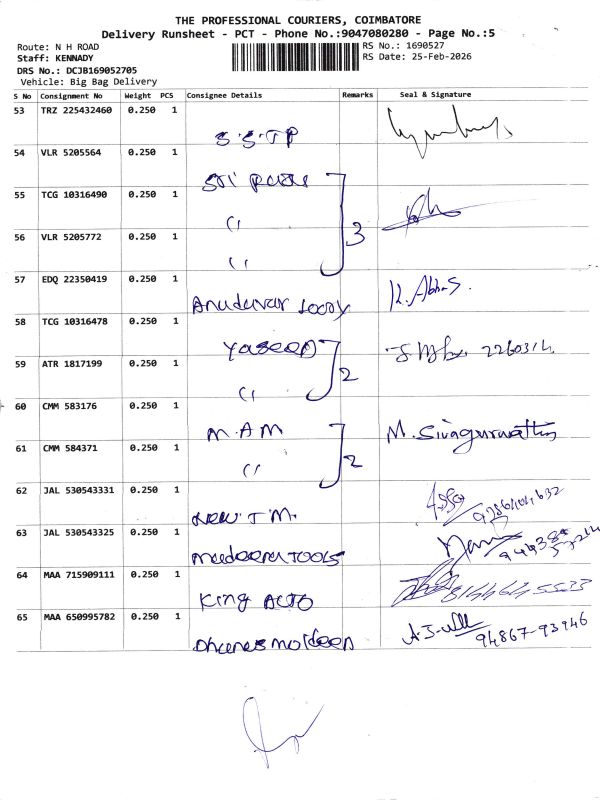 THE PROFESSIONAL COURIERS, COIMBATORE
Delivery Runsheet - PCT - Phone No.:9047080280 - Page No.:5
Route: N H ROAD
RS No.: 1690527
Staff: KENNADY
RS Date: 25-Feb-2026
DRS No.: DCJB169052705
Vehicle: Big Bag Delivery
S No Consignment No Weight PCS Consignee Details Remarks Seal & Signature
53 TRZ 225432460 0.250 1
S.S.T.P
54 VLR 5205564 0.250 1
Sri
55 TCG 10316490 0.250 1
3
56 VLR 5205772 0.250 1
57 EDQ 22350419 0.250 1
K. Abbas.
58 TCG 10316478 0.250 1
Yaseen
59 ATR 1817199 0.250 1
2
60 CMM 583176 0.250 1
M.A M
M. Sivagurunathan
61 CMM 584371 0.250 1
2
62 JAL 530543331 0.250 1
New T M.
63 JAL 530543325 0.250 1
TOOLS
64 MAA 715909111 0.250 1
King AUTO
65 MAA 650995782 0.250 1
94867-93946